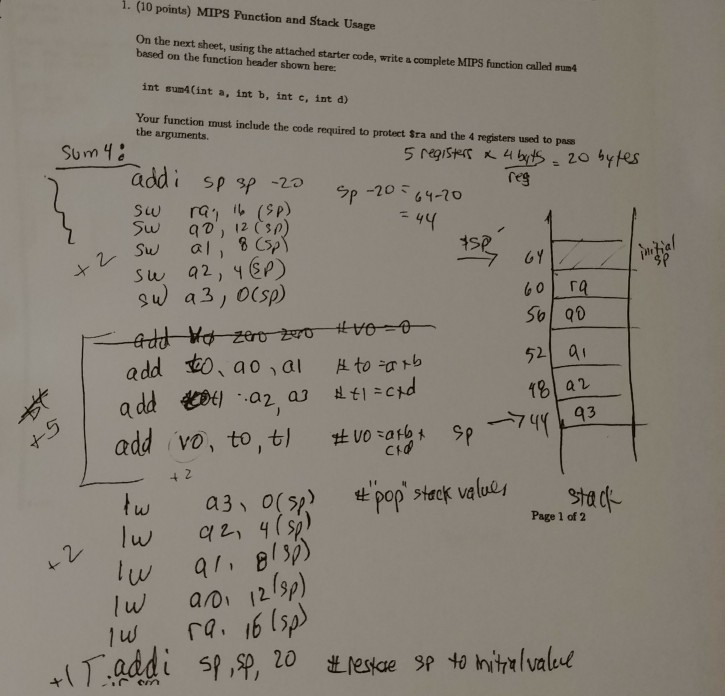 1. (10 points) MIPS Function and Stack Usage
On the next sheet, using the attached starter code, write a complete MIPS function called sum4
based on the function header shown here:
int sum4(int a, int b, int c, int d)
Your function must include the code required to protect $ra and the 4 registers used to pass
the arguments.
sum4:
5 registers x 4 byts/reg = 20 bytes
addi sp sp -20
sp -20 = 64-20
= 44
sw ra, 16 (sp)
sw a0, 12 (sp)
sw a1, 8 (sp)
+2
sw a2, 4 (sp)
sw a3, 0(sp)
*sp
64
initial sp
60 ra
56 a0
52 a1
48 a2
sp → 44 a3
stack
add v0 zero zero #v0=0
add t0, a0, a1 # t0 = a+b
add t1 a2, a3 # t1 = c+d
+5
add v0, t0, t1 # v0 = a+b+
c+d
+2
lw a3, 0(sp) #"pop" stack values
Page 1 of 2
lw a2, 4(sp)
+2
lw a1, 8(sp)
lw a0, 12(sp)
lw ra, 16(sp)
+1
addi sp, sp, 20 # restore sp to initial value